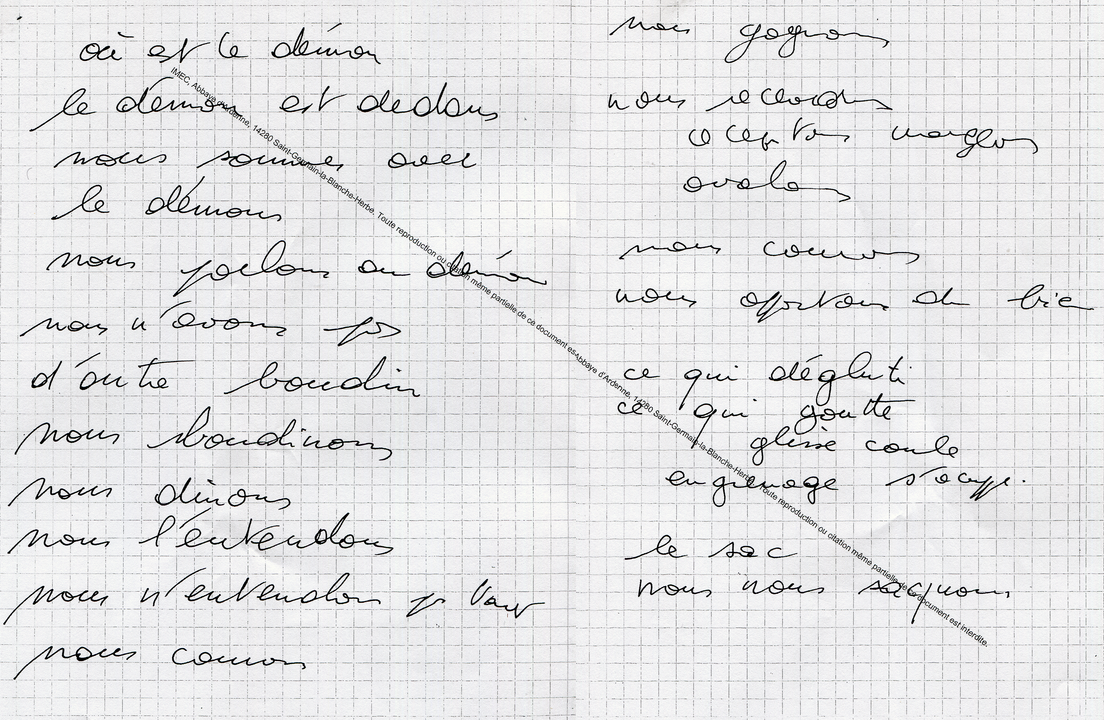 où est le démon
le démon est dedans
nous sommes avec
le démons
nous parlons au démon
nous n'avons pas
d'autre boudin
nous boudinons
nous dinons
nous l'entendons
nous n'entendons
nous courons
nous gagnons
nous
acceptons mangeons
avalons
nous courons
nous apportons du bien
ce qui dégluti
ce qui goutte
glisse coule
engrenage
le sac
nous nous sacquons
IMEC, Abbaye d'Ardenne, 14280 Saint-Germain-la-Blanche-Herbe. Toute reproduction ou citation même partielle de ce document est Abbaye d'Ardenne, 14280 Saint-Germain-la-Blanche-Herbe. Toute reproduction ou citation même partielle de ce document est interdite.